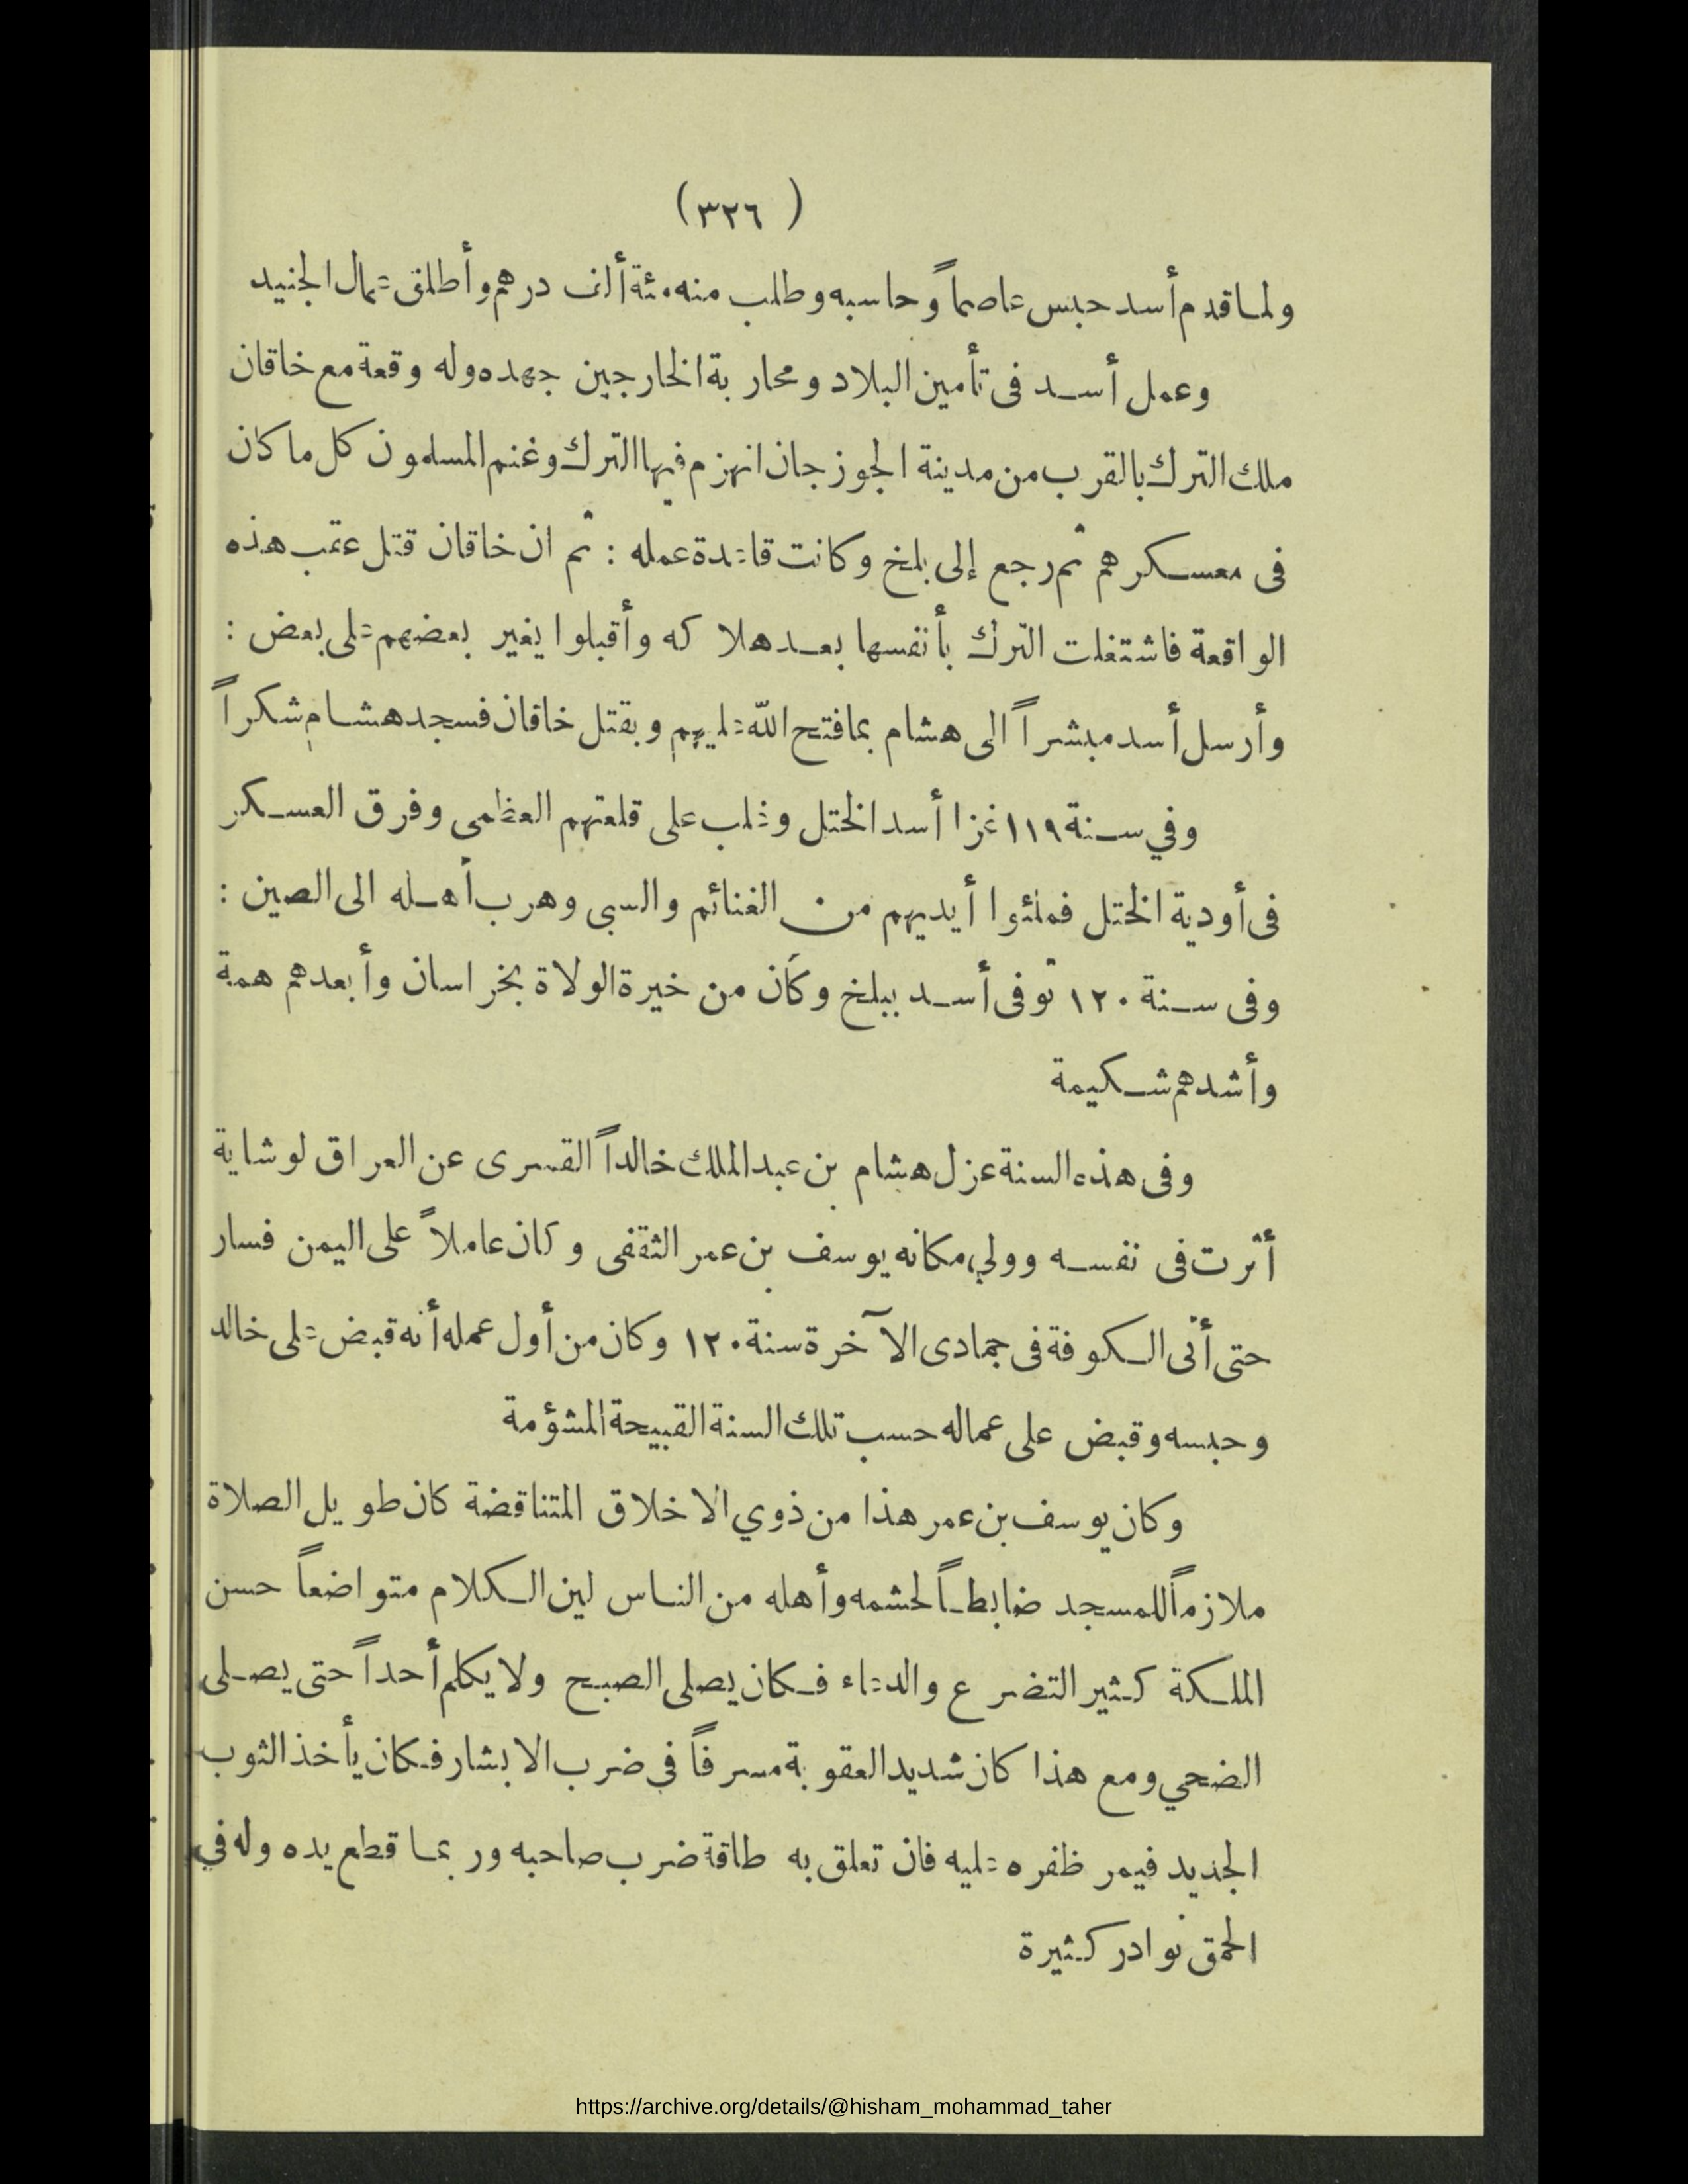 (٣٢٦)
ولما قدم أسد حبس عاصماً وحاسبه وطلب منه مئة ألف درهم وأطلق عمال الجنيد
وعمل أسد فى تأمين البلاد ومحاربة الخارجين جهده وله وقعة مع خاقان
ملك الترك بالقرب من مدينة الجوزجان انهزم فيها الترك وغنم المسلمون كل ما كان
فى معسكرهم ثم رجع إلى بلخ وكانت قاعدة عمله : ثم ان خاقان قتل عقب هذه
الواقعة فاشتغلت الترك بأنفسها بعد هلاكه وأقبلوا يغير بعضهم على بعض :
وأرسل أسد مبشراً الى هشام بما فتح الله عليهم وبقتل خاقان فسجد هشام شكراً
وفي سنة ١١٩ غزا أسد الختل وغلب على قلعتهم العظمى وفرق العسكر
فى أودية الختل فملئوا أيديهم من الغنائم والسبى وهرب أهله الى الصين :
وفى سنة ١٢٠ توفى أسد ببلخ وكان من خيرة الولاة بخراسان وأبعدهم همة
وأشدهم شكيمة
وفى هذه السنة عزل هشام بن عبد الملك خالداً القسرى عن العراق لوشاية
أثرت فى نفسه وولي مكانه يوسف بن عمر الثقفى وكان عاملاً على اليمن فسار
حتى أتى الكوفة فى جمادى الآخرة سنة ١٢٠ وكان من أول عمله أنه قبض على خالد
وحبسه وقبض على عماله حسب تلك السنة القبيحة المشؤمة
وكان يوسف بن عمر هذا من ذوي الاخلاق المتناقضة كان طويل الصلاة
ملازماً للمسجد ضابطاً لحشمه وأهله من الناس لين الكلام متواضعاً حسن
الملكة كثير التضرع والدعاء فكان يصلى الصبح ولا يكلم أحداً حتى يصلى
الضحي ومع هذا كان شديد العقوبة مسرفاً في ضرب الابشار فكان يأخذ الثوب
الجديد فيمر ظفره عليه فان تعلق به طاقة ضرب صاحبه وربما قطع يده وله في
الحمق نوادر كثيرة
https://archive.org/details/@hisham_mohammad_taher